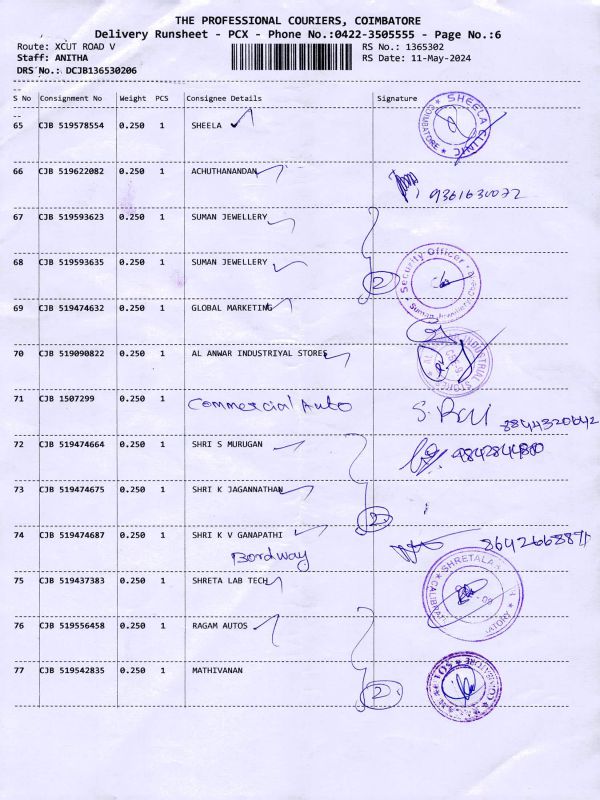 THE PROFESSIONAL COURIERS, COIMBATORE
Delivery Runsheet - PCX - Phone No.:0422-3505555 - Page No.:6
Route: XCUT ROAD V RS No.: 1365302
Staff: ANITHA RS Date: 11-May-2024
DRS No.: DCJB136530206
S No Consignment No Weight PCS Consignee Details Signature
65 CJB 519578554 0.250 1 SHEELA
SHEELA CLINIC COIMBATORE
66 CJB 519622082 0.250 1 ACHUTHANANDAN
9361630072
67 CJB 519593623 0.250 1 SUMAN JEWELLERY
68 CJB 519593635 0.250 1 SUMAN JEWELLERY 2
Security Officer
Suman
69 CJB 519474632 0.250 1 GLOBAL MARKETING
70 CJB 519090822 0.250 1 AL ANWAR INDUSTRIYAL STORES
INDUSTRIAL STORES
71 CJB 1507299 0.250 1 Commercial Auto
8844320642
72 CJB 519474664 0.250 1 SHRI S MURUGAN
73 CJB 519474675 0.250 1 SHRI K JAGANNATHAN 2
74 CJB 519474687 0.250 1 SHRI K V GANAPATHI
Bordway
75 CJB 519437383 0.250 1 SHRETA LAB TECH
76 CJB 519556458 0.250 1 RAGAM AUTOS
77 CJB 519542835 0.250 1 MATHIVANAN 2